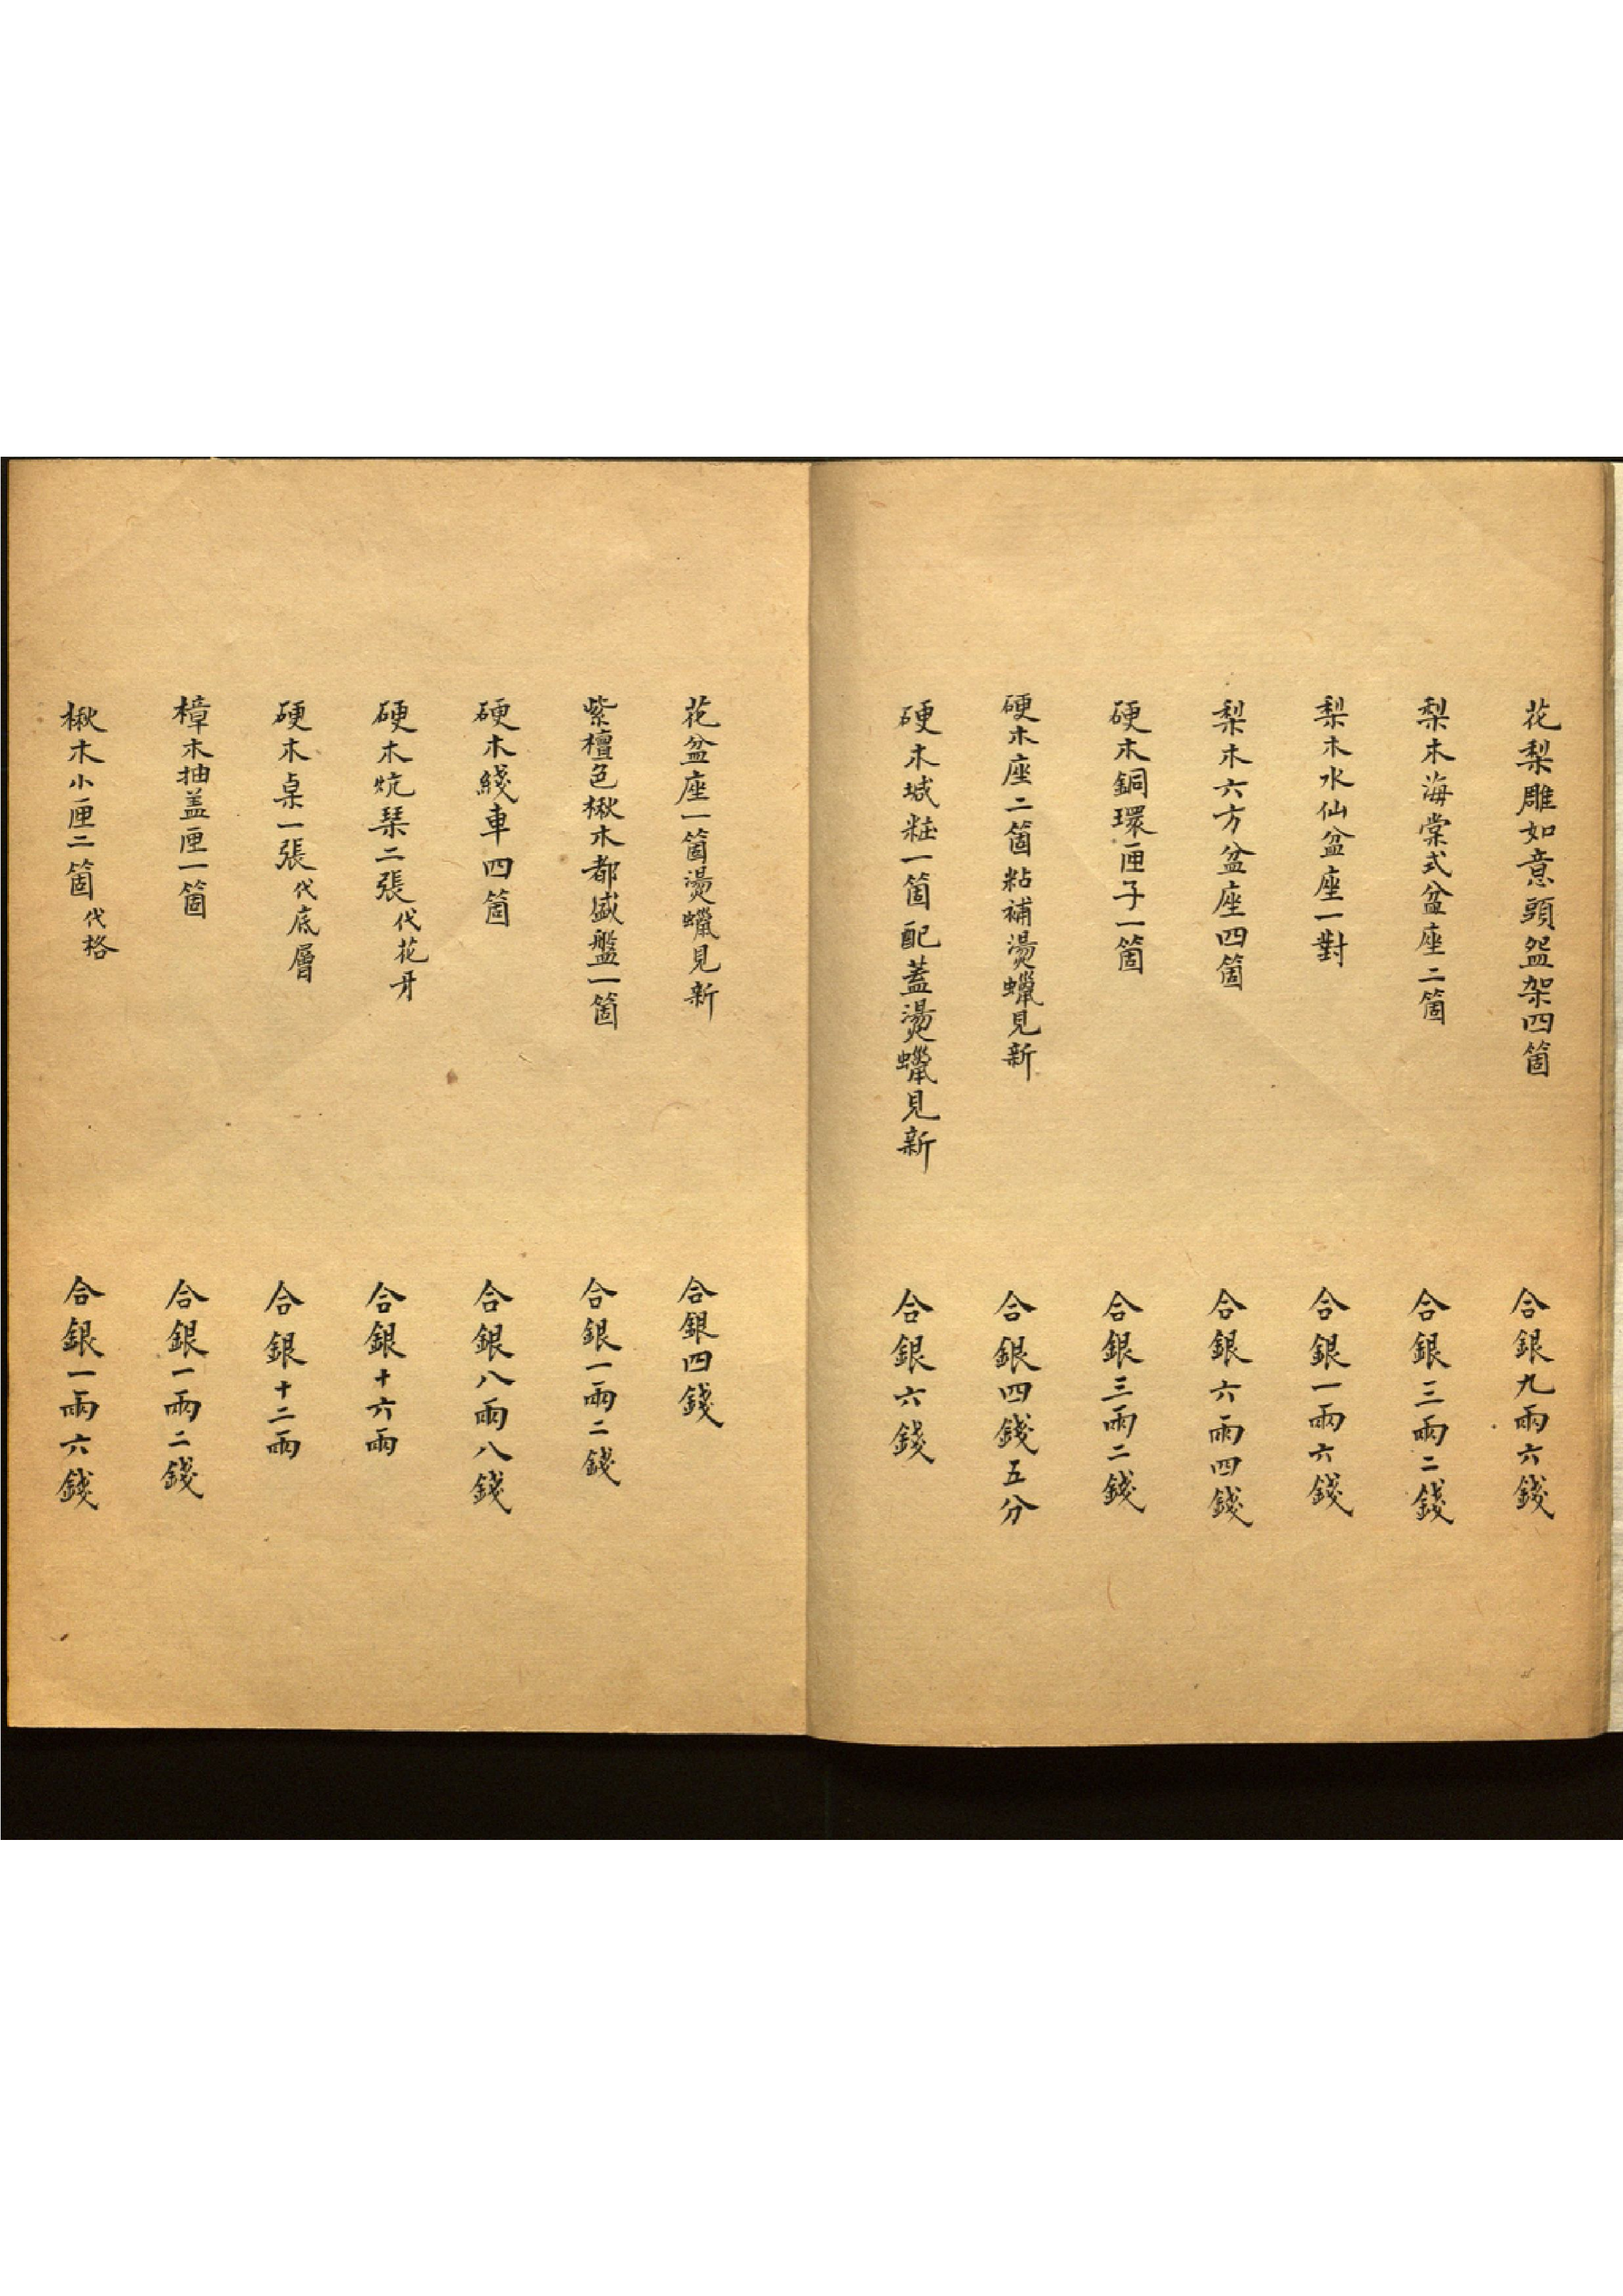 花梨雕如意頭盌架四箇 合銀九兩六錢
梨木海棠式盆座二箇 合銀三兩二錢
梨木水仙盆座一對 合銀一兩六錢
梨木六方盆座四箇 合銀六兩四錢
硬木銅環匣子一箇 合銀三兩二錢
硬木座二箇粘補燙蠟見新 合銀四錢五分
硬木城粧一箇配蓋燙蠟見新 合銀六錢
花盆座一箇燙蠟見新 合銀四錢
紫檀色楸木都盛盤一箇 合銀一兩二錢
硬木綫車四箇 合銀八兩八錢
硬木炕琹二張代花牙 合銀十六兩
硬木桌一張代底層 合銀十二兩
樟木抽盖匣一箇 合銀一兩二錢
楸木小匣二箇代格 合銀一兩六錢